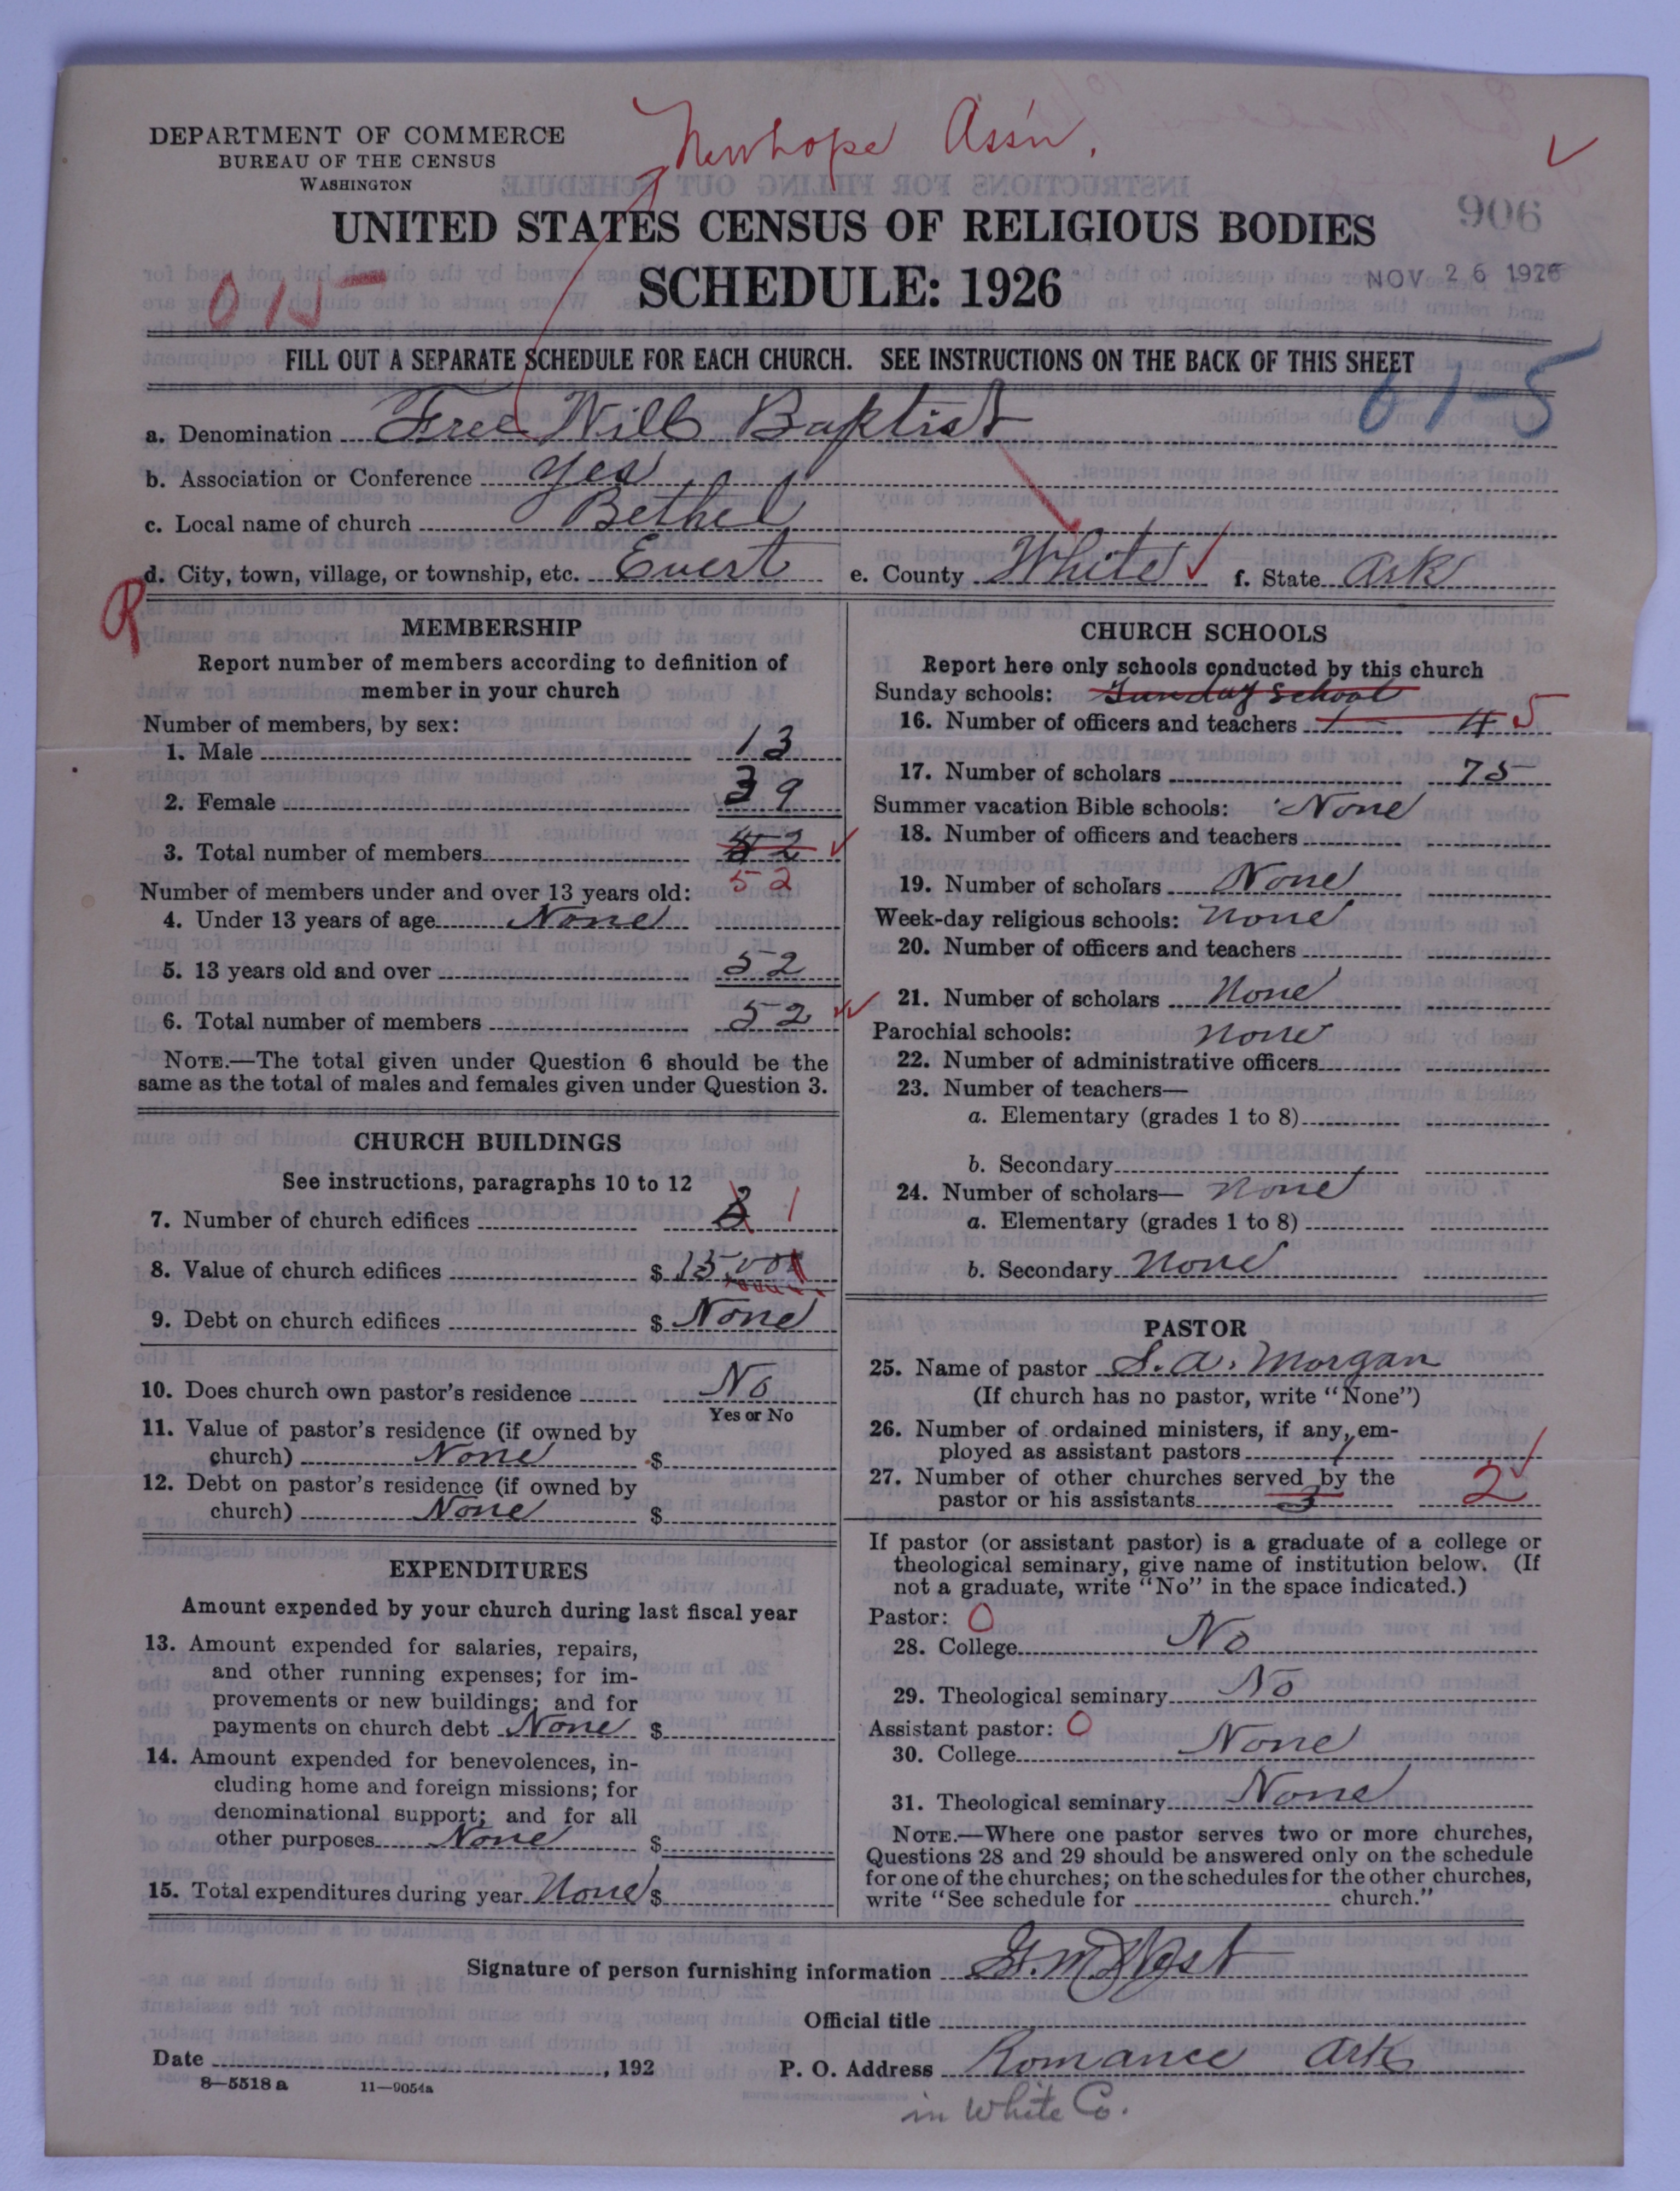 Newhope Ass'n.
DEPARTMENT OF COMMERCE
BUREAU OF THE CENSUS
WASHINGTON
UNITED STATES CENSUS OF RELIGIOUS BODIES
906
SCHEDULE: 1926
NOV 26 1926
015
FILL OUT A SEPARATE SCHEDULE FOR EACH CHURCH. SEE INSTRUCTIONS ON THE BACK OF THIS SHEET
61-5
a. Denomination Free Will Baptist
b. Association or Conference yes
c. Local name of church Bethel
d. City, town, village, or township, etc. Evert e. County White f. State Ark
R
MEMBERSHIP
Report number of members according to definition of
member in your church
Number of members, by sex:
1. Male 13
2. Female 39
3. Total number of members 52
52
Number of members under and over 13 years old:
4. Under 13 years of age None
5. 13 years old and over 52
6. Total number of members 52
NOTE.—The total given under Question 6 should be the
same as the total of males and females given under Question 3.
CHURCH BUILDINGS
See instructions, paragraphs 10 to 12
7. Number of church edifices 1
8. Value of church edifices $
9. Debt on church edifices $ None
10. Does church own pastor's residence No
Yes or No
11. Value of pastor's residence (if owned by
church) None $
12. Debt on pastor's residence (if owned by
church) None $
EXPENDITURES
Amount expended by your church during last fiscal year
13. Amount expended for salaries, repairs,
and other running expenses; for im-
provements or new buildings; and for
payments on church debt None $
14. Amount expended for benevolences, in-
cluding home and foreign missions; for
denominational support; and for all
other purposes None $
15. Total expenditures during year None $
CHURCH SCHOOLS
Report here only schools conducted by this church
Sunday schools: Sunday School
16. Number of officers and teachers 1 4 5
17. Number of scholars 75
Summer vacation Bible schools: None
18. Number of officers and teachers
19. Number of scholars None
Week-day religious schools: None
20. Number of officers and teachers
21. Number of scholars None
Parochial schools: None
22. Number of administrative officers
23. Number of teachers—
a. Elementary (grades 1 to 8)
b. Secondary
24. Number of scholars— None
a. Elementary (grades 1 to 8)
b. Secondary None
PASTOR
25. Name of pastor S. A. Morgan
(If church has no pastor, write "None")
26. Number of ordained ministers, if any, em-
ployed as assistant pastors 1
27. Number of other churches served by the
pastor or his assistants 3 2
If pastor (or assistant pastor) is a graduate of a college or
theological seminary, give name of institution below. (If
not a graduate, write "No" in the space indicated.)
Pastor: O
28. College No
29. Theological seminary No
Assistant pastor: O
30. College None
31. Theological seminary None
NOTE.—Where one pastor serves two or more churches,
Questions 28 and 29 should be answered only on the schedule
for one of the churches; on the schedules for the other churches,
write "See schedule for church."
Signature of person furnishing information G. M.
Official title
Date , 192 P. O. Address Romance Ark
8—5518 a 11—9054a
in White Co.